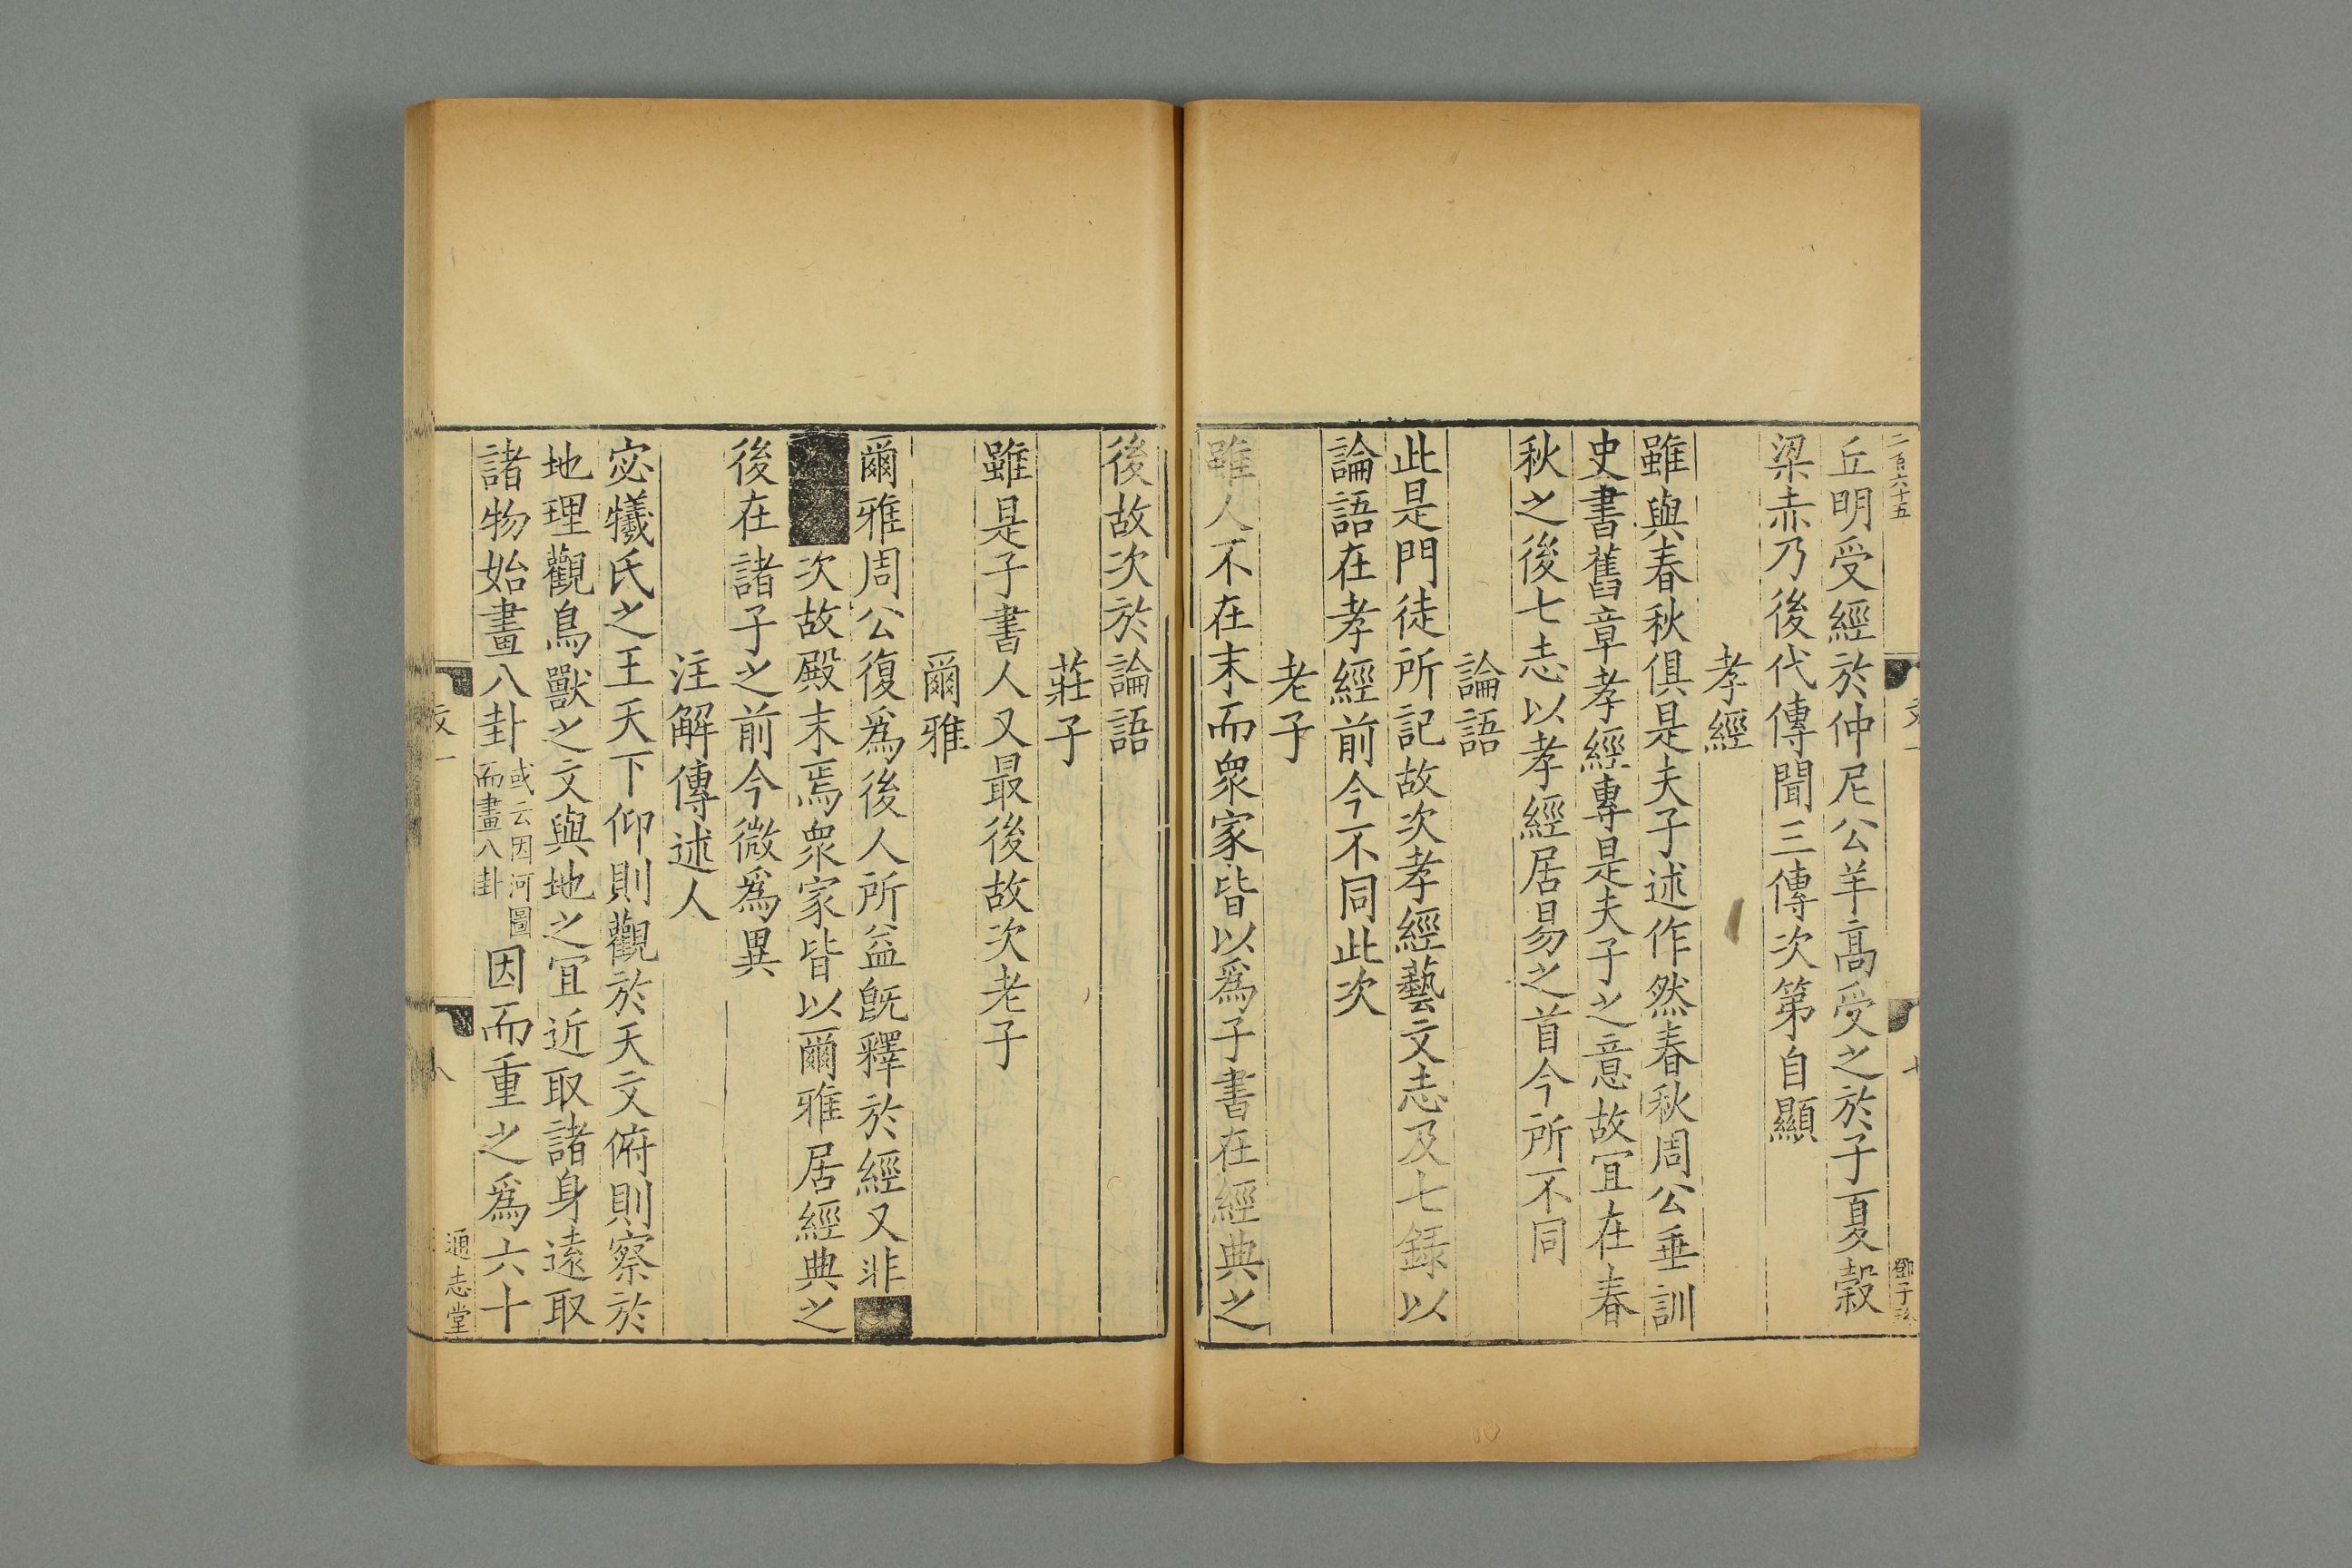 二百六十五
丘明受經於仲尼公羊高受之於子夏穀
梁赤乃後代傳聞三傳次第自顯
孝經
雖與春秋俱是夫子述作然春秋周公垂訓
史書舊章孝經專是夫子之意故宜在春
秋之後七志以孝經居易之首今所不同
論語
此是門徒所記故次孝經藝文志及七錄以
論語在孝經前今不同此次
老子
雖人不在末而衆家皆以爲子書在經典之
後故次於論語
莊子
雖是子書人又最後故次老子
爾雅
爾雅周公復爲後人所益旣釋於經又非
次故殿末焉衆家皆以爾雅居經典之
後在諸子之前今微爲異
注解傳述人
宓犧氏之王天下仰則觀於天文俯則察於
地理觀鳥獸之文與地之宜近取諸身遠取
諸物始畫八卦或云因河圖而畫八卦因而重之爲六十
通志堂